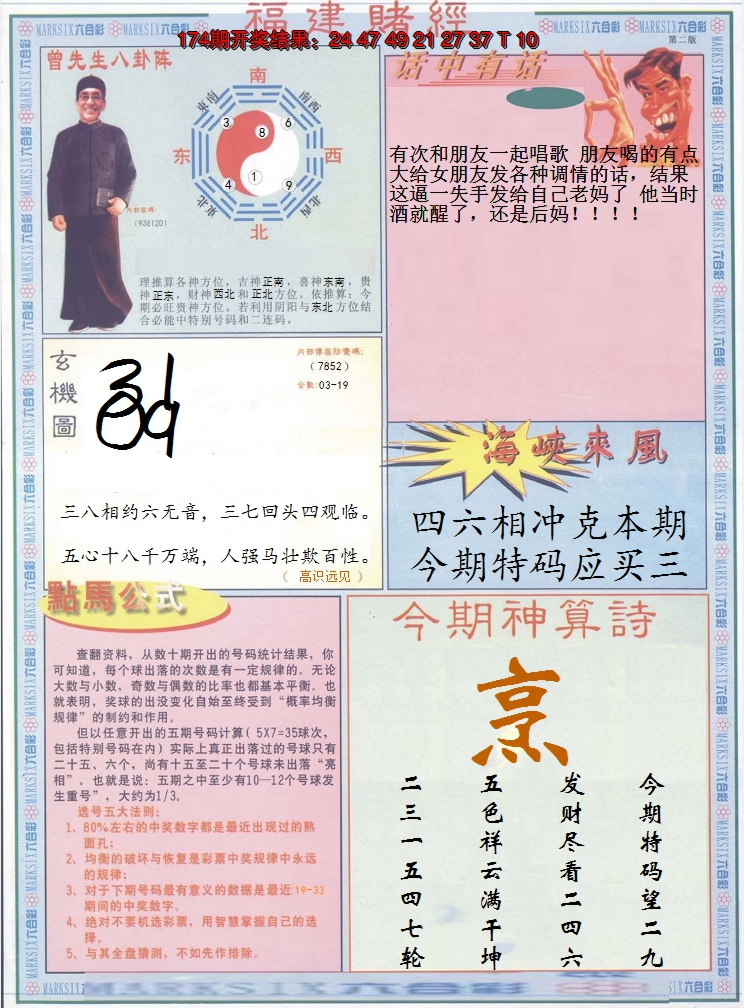 福建賭經
174期开奖结果：24 47 49 21 27 37 T 10
MARKSIX六合彩
第二版
曾先生八卦阵
南
東南
南西
3
8
6
东
西
4
1
9
東北
北西
北
内部密碼：
（936120）
理推算各神方位，吉神正南，喜神东南，贵
神正东，财神西北和正北方位。依推算：今
期必旺贵神方位。若利用阴阳与东北方位结
合必能中特别号码和二连码。
话中有话
有次和朋友一起唱歌 朋友喝的有点
大给女朋友发各种调情的话，结果
这逼一失手发给自己老妈了 他当时
酒就醒了，还是后妈！！！！
玄機圖
（7852）
合数:03-19
三八相约六无音，三七回头四观临。
五心十八千万端，人强马壮欺百性。
（ 高识远见 ）
海峡來風
四六相冲克本期
今期特码应买三
點馬公式
查翻资料，从数十期开出的号码统计结果，你
可知道，每个球出落的次数是有一定规律的。无论
大数与小数，奇数与偶数的比率也都基本平衡。也
就表明，奖球的出没变化自始至终受到“概率均衡
规律”的制约和作用。
但以任意开出的五期号码计算（5X7=35球次，
包括特别号码在内）实际上真正出落过的号球只有
二十五、六个，尚有十五至二十个号球未出落“亮
相”。也就是说：五期之中至少有10—12个号球发
生重号”，大约为1/3。
选号五大法则：
1、80%左右的中奖数字都是最近出现过的熟
面孔；
2、均衡的破坏与恢复是彩票中奖规律中永远
的规律；
3、对于下期号码最有意义的数据是最近19-33
期间的中奖数字。
4、绝对不要机选彩票，用智慧掌握自己的选
择。
5、与其全盘猜测，不如先作排除。
今期神算詩
烹
今期特码望二九
发财尽看二四六
五色祥云满干坤
二三一五四七轮